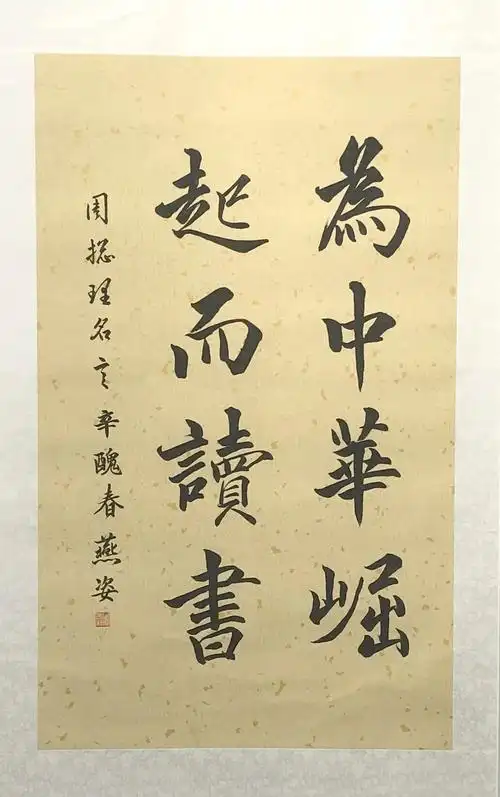 為中華崛
起而讀書
周總理名言 辛醜春燕姿